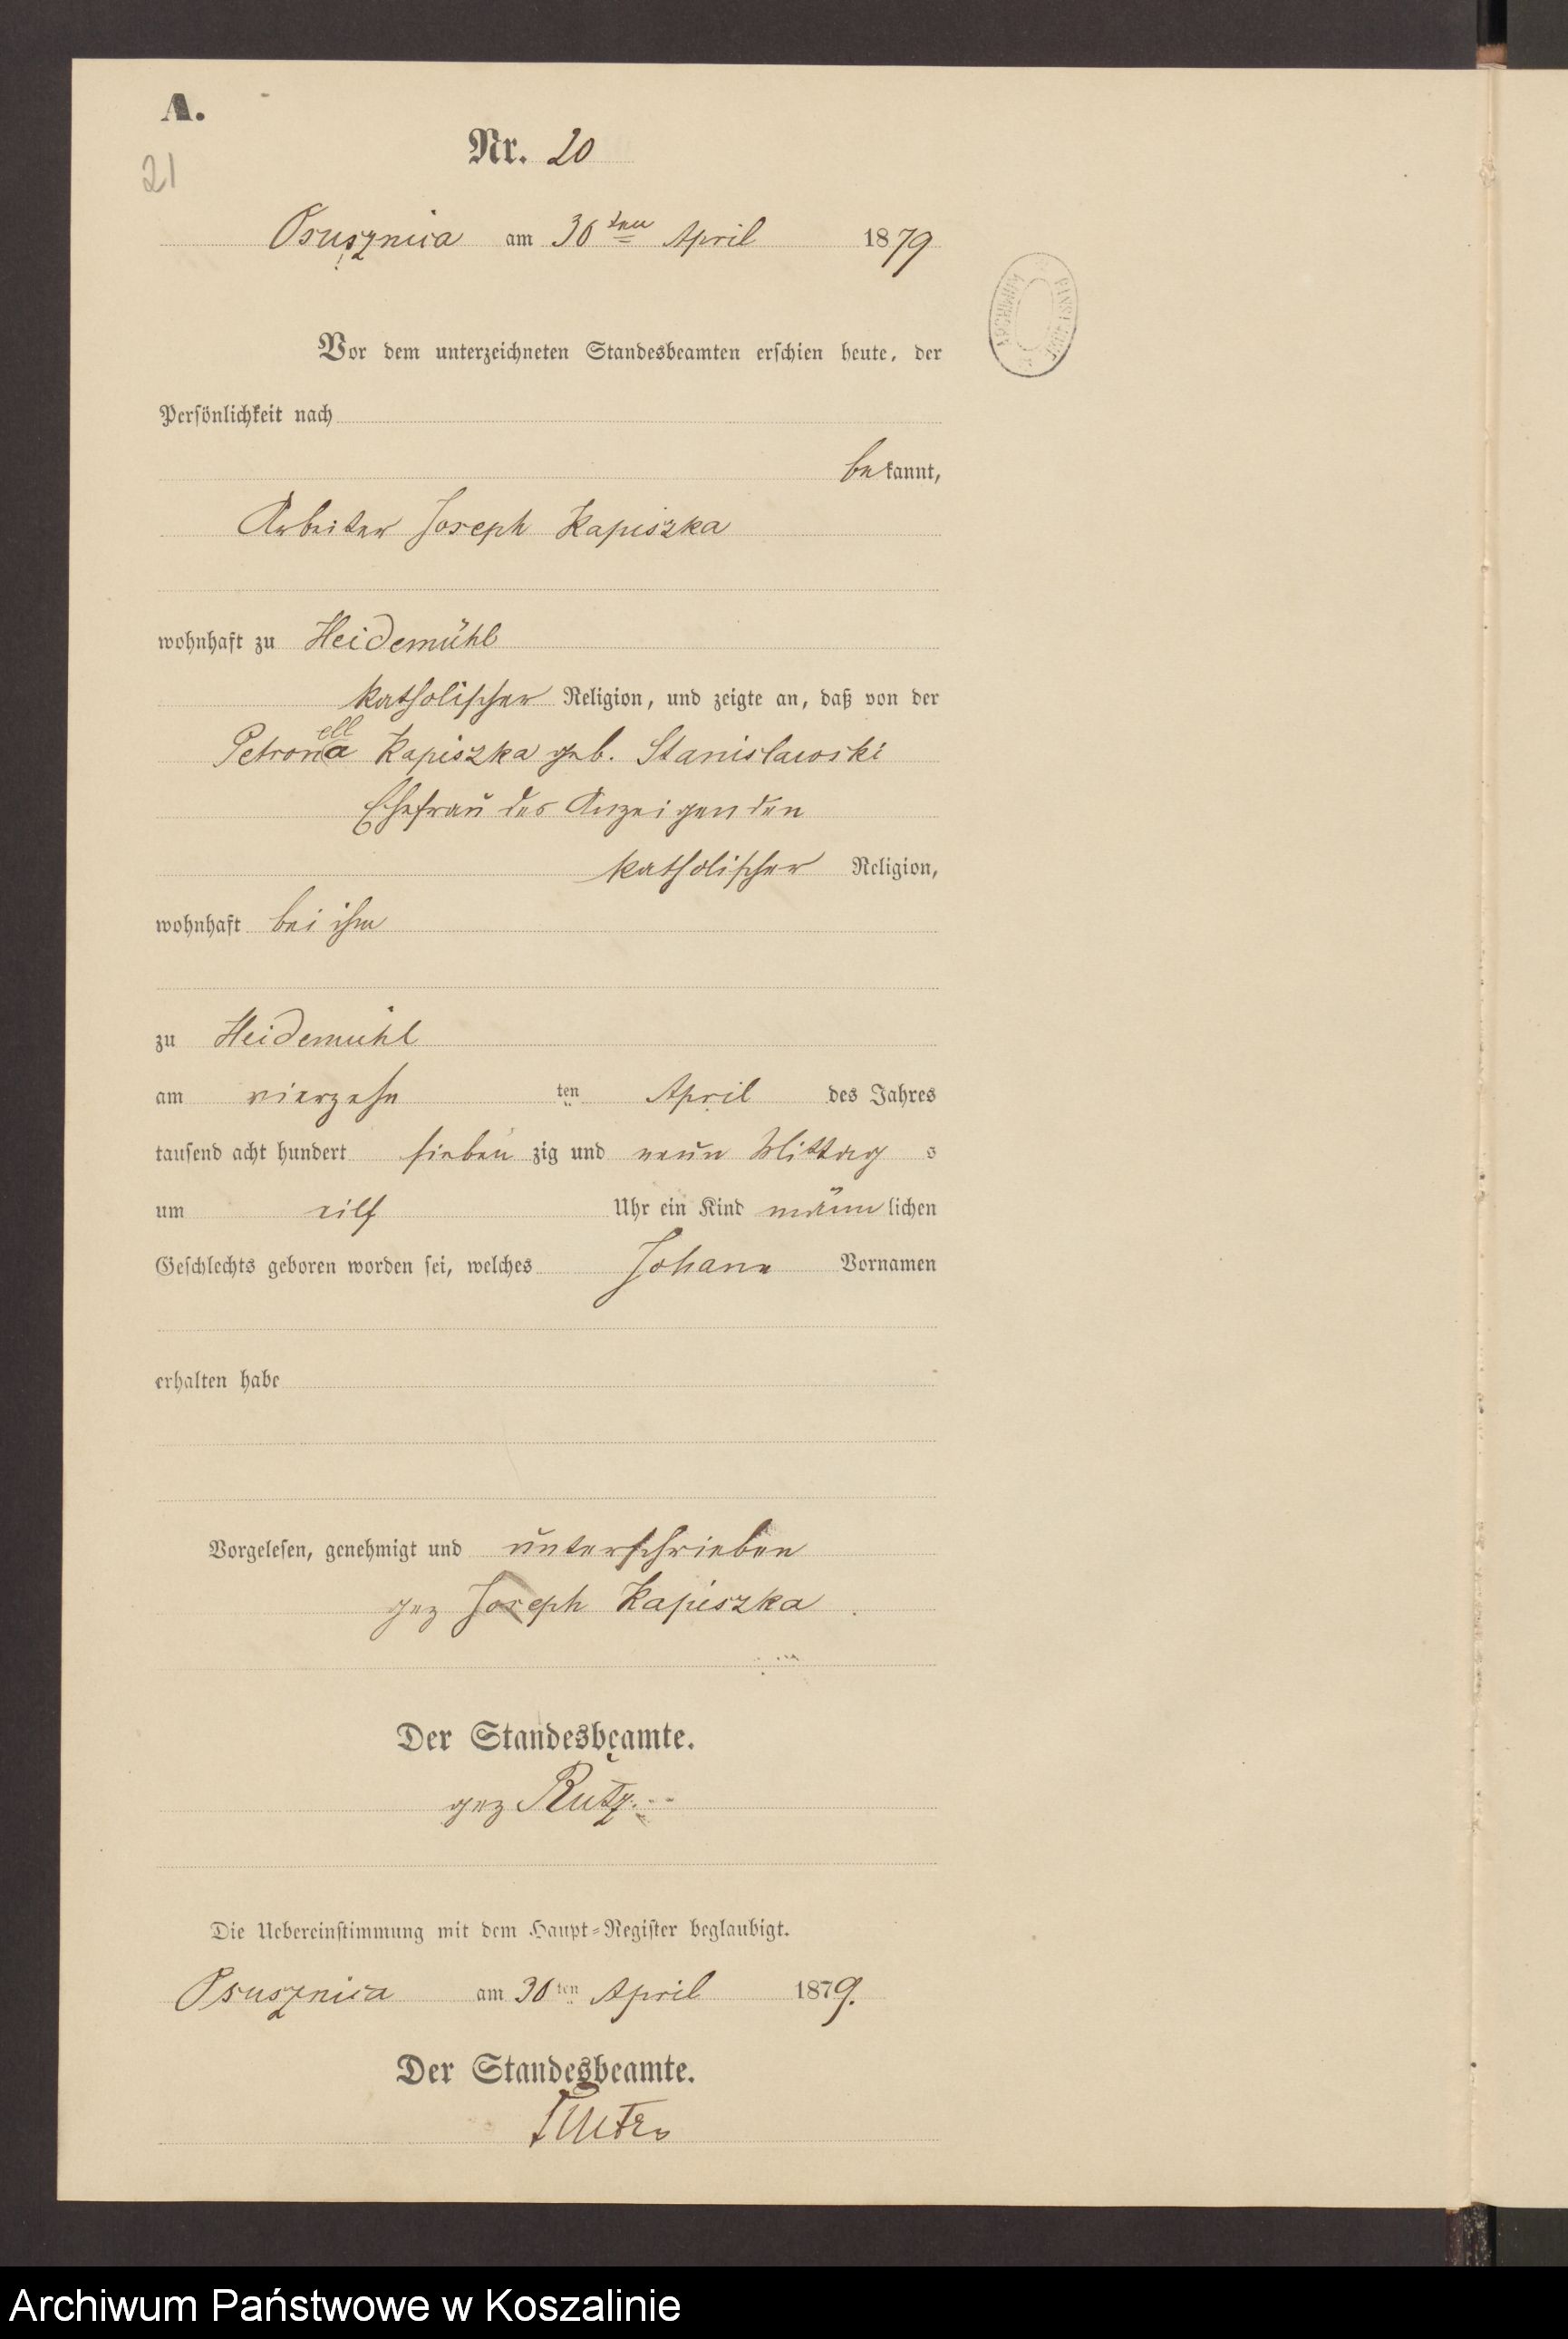 A.
21
Nr. 20
Osusznica am 30 ten April 1879
ARCHIWUM PAŃSTWOWE
Vor dem unterzeichneten Standesbeamten erschien heute, der
Persönlichkeit nach
bekannt,
Arbeiter Joseph Kapiszka
wohnhaft zu Heidemühl
katholischer Religion, und zeigte an, daß von der
ell
Petrona Kapiszka geb. Stanislawski
Ehefrau des Anzeigenden
katholischer Religion,
wohnhaft bei ihm
zu Heidemühl
am vierzehn ten April des Jahres
tausend acht hundert sieben zig und neun Mittag s
um eilf Uhr ein Kind männlichen
Geschlechts geboren worden sei, welches Johann Vornamen
erhalten habe
Vorgelesen, genehmigt und unterschrieben
gez Joseph Kapiszka
Der Standesbeamte.
gez Rutz
Die Uebereinstimmung mit dem Haupt-Register beglaubigt.
Osusznica am 30 ten April 1879.
Der Standesbeamte.
Archiwum Państwowe w Koszalinie